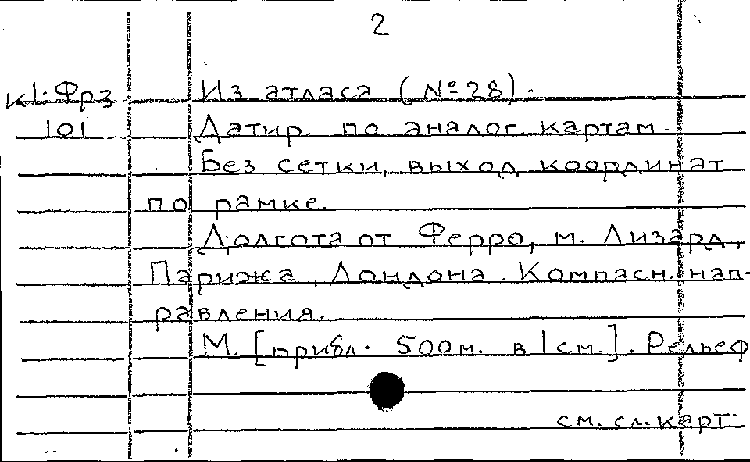 2
К1-Фрз Из атласа (№28).
101 Датир. по аналог. картам.
Без сетки, выход координат
по рамке.
Долгота от Ферро, м. Лизард,
Парижа, Лондона. Компасн. нап-
равления.
М. [прибл. 500м. в 1см.]. Рельеф
см. сл. карт.